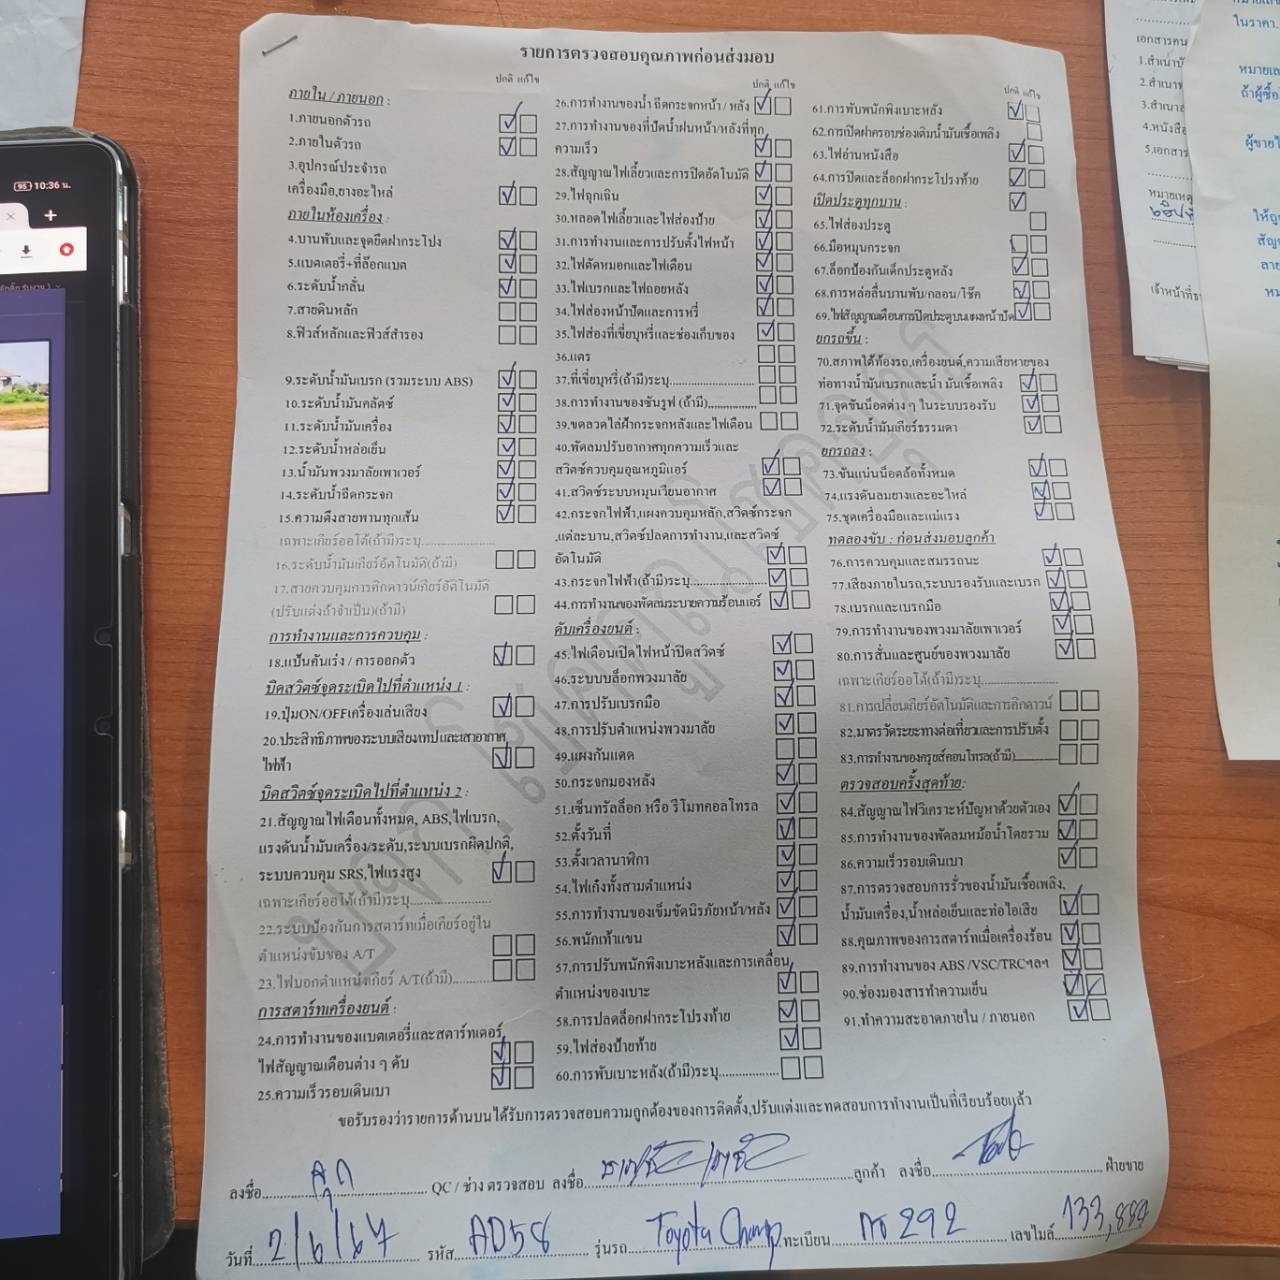 รายการตรวจสอบคุณภาพก่อนส่งมอบ
ปกติ แก้ไข
ภายใน / ภายนอก :
1.ภายนอกตัวรถ
2.ภายในตัวรถ
3.อุปกรณ์ประจำรถ
เครื่องมือ,ยางอะไหล่
ภายในห้องเครื่อง :
4.บานพับและจุดยึดฝากระโปง
5.แบตเตอรี่+ที่ล๊อกแบต
6.ระดับน้ำกลั่น
7.สายดินหลัก
8.ฟิวส์หลักและฟิวส์สำรอง
9.ระดับน้ำมันเบรก (รวมระบบ ABS)
10.ระดับน้ำมันคลัตซ์
11.ระดับน้ำมันเครื่อง
12.ระดับน้ำหล่อเย็น
13.น้ำมันพวงมาลัยเพาเวอร์
14.ระดับน้ำฉีดกระจก
15.ความตึงสายพานทุกเส้น
เฉพาะเกียร์ออโต้(ถ้ามี)ระบุ
16.ระดับน้ำมันเกียร์อัตโนมัติ(ถ้ามี)
17.สายควบคุมการคิกดาวน์เกียร์อัตโนมัติ
(ปรับแต่งถ้าจำเป็น)(ถ้ามี)
การทำงานและการควบคุม :
18.แป้นคันเร่ง / การออกตัว
บิดสวิตซ์จุดระเบิดไปที่ตำแหน่ง 1 :
19.ปุ่มON/OFFเครื่องเล่นเสียง
20.ประสิทธิภาพของระบบเสียงเทป และเสาอากาศ
ไฟฟ้า
บิดสวิตซ์จุดระเบิดไปที่ตำแหน่ง 2 :
21.สัญญาณไฟเตือนทั้งหมด, ABS,ไฟเบรก,
แรงดันน้ำมันเครื่อง/ระดับ,ระบบเบรกผิดปกติ,
ระบบควบคุม SRS,ไฟแรงสูง
เฉพาะเกียร์ออโต้(ถ้ามี)ระบุ
22.ระบบป้องกันการสตาร์ทเมื่อเกียร์อยู่ใน
ตำแหน่งขับของ A/T
23.ไฟบอกตำแหน่งเกียร์ A/T(ถ้ามี)
การสตาร์ทเครื่องยนต์ :
24.การทำงานของแบตเตอรี่และสตาร์ทเตอร์,
ไฟสัญญาณเตือนต่าง ๆ ดับ
25.ความเร็วรอบเดินเบา
ปกติ แก้ไข
26.การทำงานของน้ำ ฉีดกระจกหน้า / หลัง
27.การทำงานของที่ปัดน้ำฝนหน้า/หลังที่ทุก
ความเร็ว
28.สัญญาณไฟเลี้ยวและการปิดอัตโนมัติ
29.ไฟฉุกเฉิน
30.หลอดไฟเลี้ยวและไฟส่องป้าย
31.การทำงานและการปรับตั้งไฟหน้า
32.ไฟตัดหมอกและไฟเตือน
33.ไฟเบรกและไฟถอยหลัง
34.ไฟส่องหน้าปัดและการหรี่
35.ไฟส่องที่เขี่ยบุหรี่และช่องเก็บของ
36.แตร
37.ที่เขี่ยบุหรี่(ถ้ามี)ระบุ
38.การทำงานของซันรูฟ (ถ้ามี)
39.ขดลวดไล่ฝ้ากระจกหลังและไฟเตือน
40.พัดลมปรับอากาศทุกความเร็วและ
สวิตซ์ควบคุมอุณหภูมิแอร์
41.สวิตซ์ระบบหมุนเวียนอากาศ
42.กระจกไฟฟ้า,แผงควบคุมหลัก,สวิตซ์กระจก
,แต่ละบาน,สวิตซ์ปลดการทำงาน,และสวิตซ์
อัตโนมัติ
43.กระจกไฟฟ้า(ถ้ามี)ระบุ
44.การทำงานของพัดลมระบายความร้อนแอร์
ดับเครื่องยนต์ :
45.ไฟเตือนเปิดไฟหน้าปิดสวิตซ์
46.ระบบบล็อกพวงมาลัย
47.การปรับเบรกมือ
48.การปรับตำแหน่งพวงมาลัย
49.แผงกันแดด
50.กระจกมองหลัง
51.เซ็นทรัลล็อก หรือ รีโมทคอลโทรล
52.ตั้งวันที่
53.ตั้งเวลานาฬิกา
54.ไฟเก๋งทั้งสามตำแหน่ง
55.การทำงานของเข็มขัดนิรภัยหน้า/หลัง
56.พนักเท้าแขน
57.การปรับพนักพิงเบาะหลังและการเคลื่อน,
ตำแหน่งของเบาะ
58.การปลดล็อกฝากระโปรงท้าย
59.ไฟส่องป้ายท้าย
60.การพับเบาะหลัง(ถ้ามี)ระบุ
ปกติ แก้ไข
61.การพับพนักพิงเบาะหลัง
62.การเปิดฝาครอบช่องเติมน้ำมันเชื้อเพลิง
63.ไฟอ่านหนังสือ
64.การปิดและล็อกฝากระโปรงท้าย
เปิดประตูทุกบาน :
65.ไฟส่องประตู
66.มือหมุนกระจก
67.ล็อกป้องกันเด็กประตูหลัง
68.การหล่อลื่นบานพับ/กลอน/โช๊ค
69.ไฟสัญญาณเตือนการปิดประตูบนแผงหน้าปัด
ยกรถขึ้น :
70.สภาพใต้ท้องรถ,เครื่องยนต์,ความเสียหายของ
ท่อทางน้ำมันเบรกและน้ำ มันเชื้อเพลิง
71.จุดขันน็อตต่าง ๆ ในระบบรองรับ
72.ระดับน้ำมันเกียร์ธรรมดา
ยกรถลง :
73.ขันแน่นน็อตล้อทั้งหมด
74.แรงดันลมยางและอะไหล่
75.ชุดเครื่องมือและแม่แรง
ทดลองขับ : ก่อนส่งมอบลูกค้า
76.การควบคุมและสมรรถนะ
77.เสียงภายในรถ,ระบบรองรับและเบรก
78.เบรกและเบรกมือ
79.การทำงานของพวงมาลัยเพาเวอร์
80.การสั่นและศูนย์ของพวงมาลัย
เฉพาะเกียร์ออโต้(ถ้ามี)ระบุ
81.การเปลี่ยนเกียร์อัตโนมัติและการคิกดาวน์
82.มาตรวัดระยะทางต่อเที่ยวและการปรับตั้ง
83.การทำงานของครูซส์คอนโทรล(ถ้ามี)
ตรวจสอบครั้งสุดท้าย:
84.สัญญาณไฟวิเคราะห์ปัญหาด้วยตัวเอง
85.การทำงานของพัดลมหม้อน้ำโดยรวม
86.ความเร็วรอบเดินเบา
87.การตรวจสอบการรั่วของน้ำมันเชื้อเพลิง,
น้ำมันเครื่อง,น้ำหล่อเย็นและท่อไอเสีย
88.คุณภาพของการสตาร์ทเมื่อเครื่องร้อน
89.การทำงานของ ABS /VSC/TRCฯลฯ
90.ช่องมองสารทำความเย็น
91.ทำความสะอาดภายใน / ภายนอก
ขอรับรองว่ารายการด้านบนได้รับการตรวจสอบความถูกต้องของการติดตั้ง,ปรับแต่งและทดสอบการทำงานเป็นที่เรียบร้อยแล้ว
ลงชื่อ QC / ช่าง ตรวจสอบ ลงชื่อ ลูกค้า ลงชื่อ ฝ่ายขาย
วันที่ 2/6/67 รหัส AD58 รุ่นรถ Toyota Champ ทะเบียน 292 เลขไมล์ 133,884
95 10:36 น.
เอกสารคน
ในราคา
ถ้าผู้ซื้อ
ผู้ขาย
หมายเหตุ
เจ้าหน้าที่